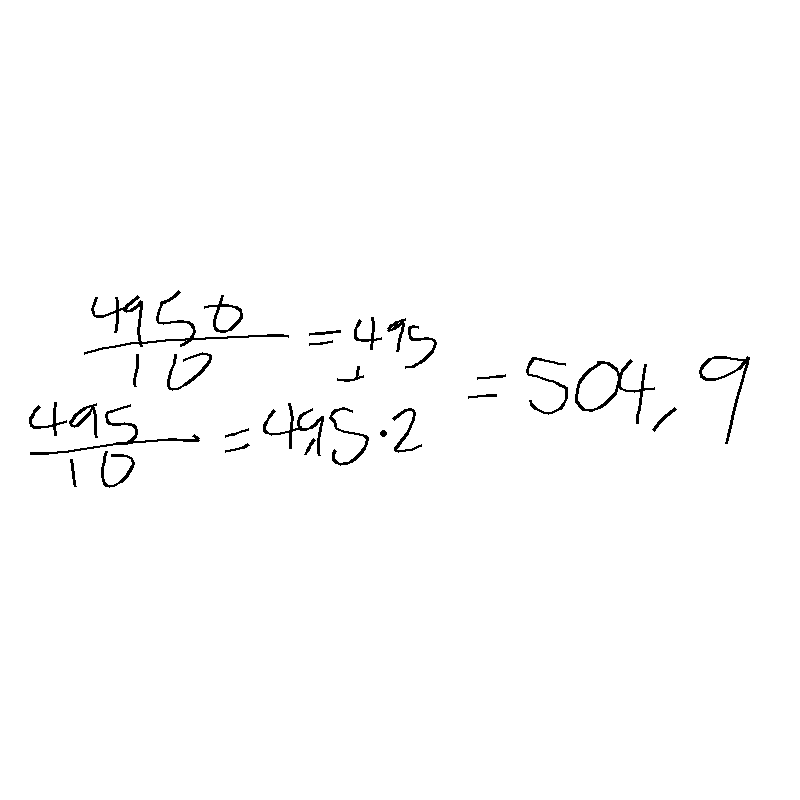 4950/10 = 495
+
495/10 = 4,95·2
= 504,9